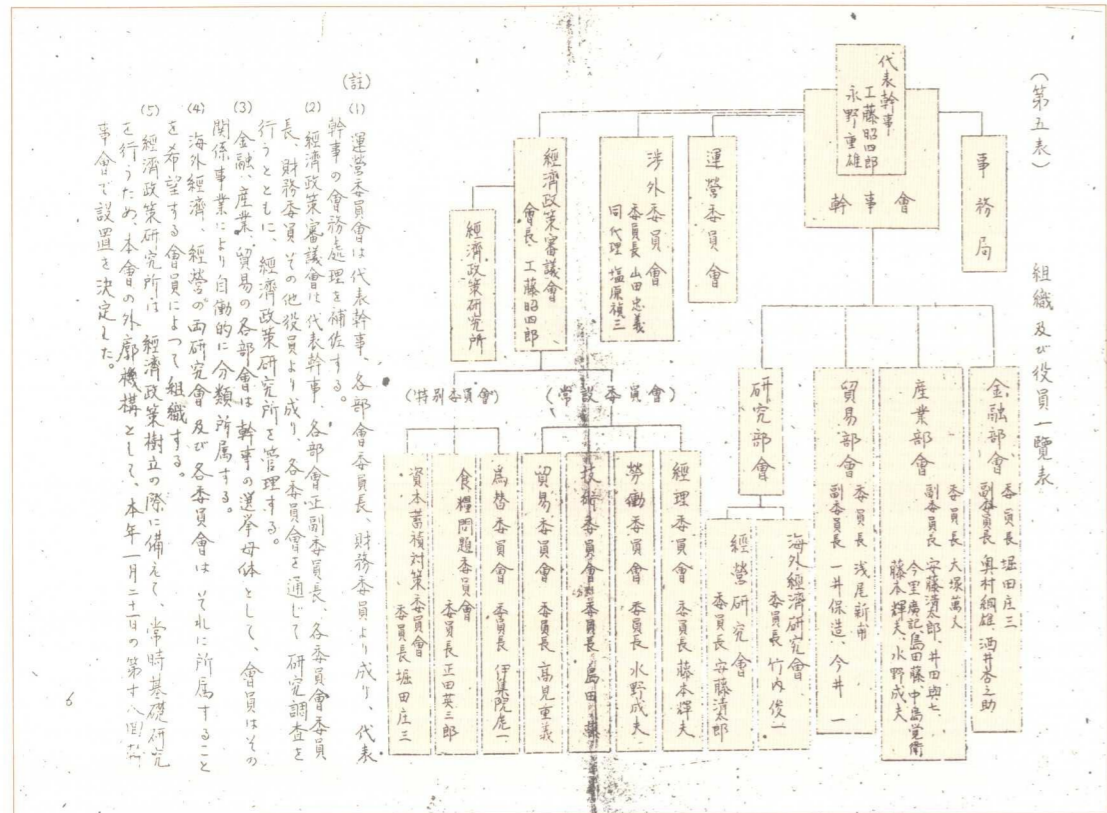 (第五表)
組織及び役員一覧表
事務局
代表幹事
工藤昭四郎
永野重雄
幹事會
運營委員會
涉外委員會
委員長 山田忠義
同代理 塩原禎三
經濟政策審議會
會長 工藤昭四郎
經濟政策研究所
金融部會
委員長 堀田庄三
副委員長 奥村綱雄 酒井杏之助
産業部會
委員長 大塚萬丈
副委員長 安藤清太郎、井田與七、
今里廣記 島田藤 中島
藤本輝夫、水野成夫
貿易部會
委員長 浅尾新甫
副委員長 一井保造、今井一
研究部會
海外經濟研究會
委員長 竹内俊一
經營研究會
委員長 安藤清太郎
(常設委員會)
經理委員會 委員長 藤本輝夫
勞働委員會 委員長 水野成夫
技術委員會 委員長 島田藤
貿易委員會 委員長 高見重義
爲替委員會 委員長
(特別委員會)
食糧問題委員會
委員長 正田英三郎
資本蓄積対策委員會
委員長 堀田庄三
(註)
(1) 運營委員會は代表幹事、各部會委員長、財務委員より成り、代表
幹事の會務處理を補佐する。
(2) 經濟政策審議會は代表幹事、各部會正副委員長、各委員會委員
長、財務委員その他役員より成り、各委員會を通じて研究調査を
行うとともに、經濟政策研究所を管理する。
(3) 金融、産業、貿易の各部會は幹事の選挙母体として、會員はその
関係事業により自働的に分類所属する。
(4) 海外經濟、經營の両研究會及び各委員會はそれに所属すること
を希望する會員によつて組織する。
(5) 經濟政策研究所は 經濟政策樹立の際に備えて、常時基礎研究
を行うため、本會の外廓機構として、本年一月二十一日の第十八回幹
事會で設置を決定した。
6